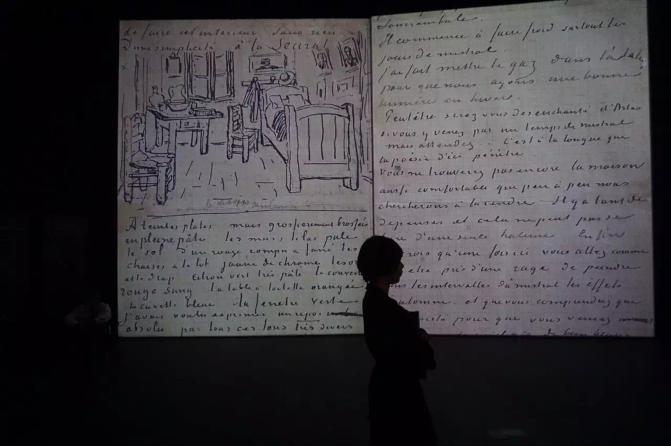 de faire cet interieur sans rien
d'une simplicité à la Seurat
A teintes plates mais grossierement brossées
en pleine pâte les murs lilas pale
le sol d'un rouge rompu & fané les
chaises & le lit jaune de chrome les
et le drap citron vert très pâle la couverture
rouge sang la table à toilette orangée
la cuvette bleue la fenetre verte
J'avais voulu exprimer un repos
absolu par tous ces tons très divers
Somnambule
Il commence à faire froid surtout les
jours de mistral.
j'ai fait mettre le gaz dans l'atelier
pour que nous ayons une bonne
lumière en hiver.
Peutêtre serez vous desenchanté d'Arles
si vous y venez par un temps de mistral
mais attendez. C'est à la longue que
la poésie d'ici penètre
Vous ne trouverez pas encore la maison
aussi comfortable que peu à peu nous
chercherons à la rendre. Il y a tant de
depenses et cela ne peut pas se
d'une seule haleine. Enfin
crois qu'une fois ici vous allez comme
pris d'une rage de peindre
les intervalles du mistral les effets
automne et que vous comprendrez que
pour que vous veniez